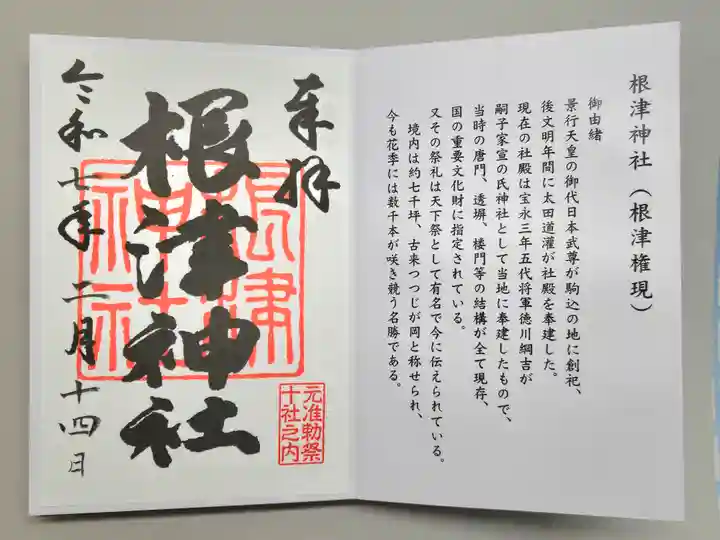 根津神社（根津権現）
御由緒
景行天皇の御代日本武尊が駒込の地に創祀、
後文明年間に太田道灌が社殿を奉建した。
現在の社殿は宝永三年五代将軍徳川綱吉が
嗣子家宣の氏神社として当地に奉建したもので、
当時の唐門、透塀、楼門等の結構が全て現存、
国の重要文化財に指定されている。
又その祭礼は天下祭として有名で今に伝えられている。
境内は約七千坪、古来つつじが岡と称せられ、
今も花季には数千本が咲き競う名勝である。
奉拝
根津神社
根津
神社
元准勅祭
十社之内
令和七年二月十四日